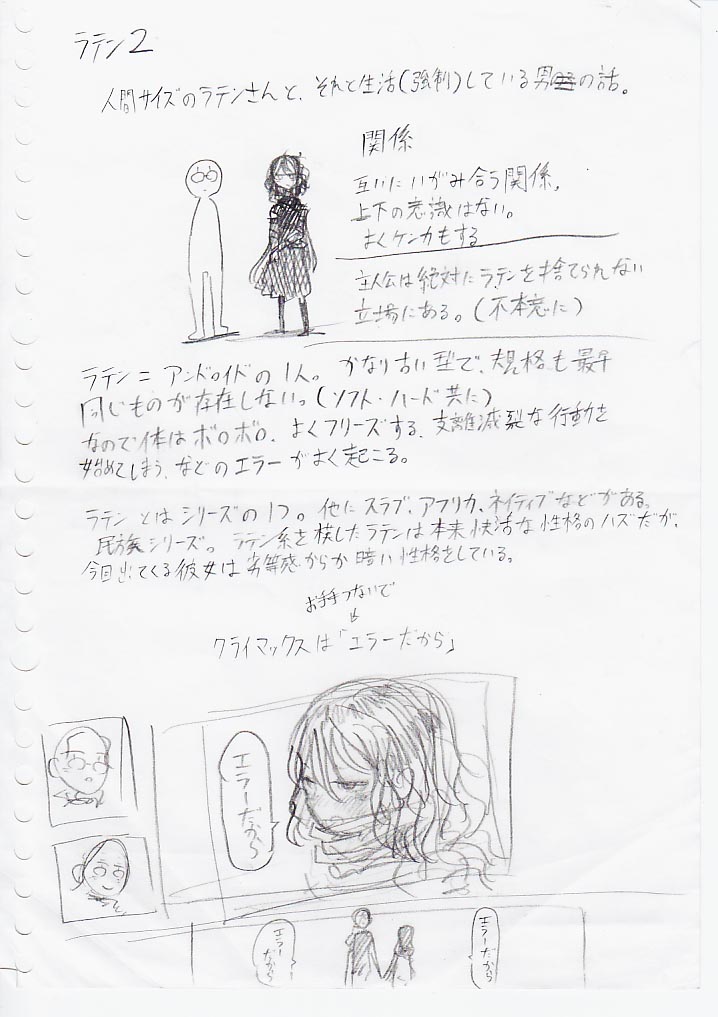 ラテン2
人間サイズのラテンさんと、それと生活(強制)している男の話。
関係
互いにいがみ合う関係。
上下の意識はない。
よくケンカもする
主人公は絶対にラテンを捨てられない
立場にある。(不本意に)
ラテン=アンドロイドの1人。かなり古い型で、規格も最早
同じものが存在しない。(ソフト・ハード共に)
なので体はボロボロ、よくフリーズする、支離滅裂な行動を
始めてしまう、などのエラーがよく起こる。
ラテンとはシリーズの1つ。他にスラブ、アフリカ、ネイティブなどがある。
民族シリーズ。ラテン系を模したラテンは本来快活な性格のハズだが、
今回出てくる彼女は劣等感からか暗い性格をしている。
お手手つないで
クライマックスは「エラーだから」
エラーだから
エラーだから
エラーだから